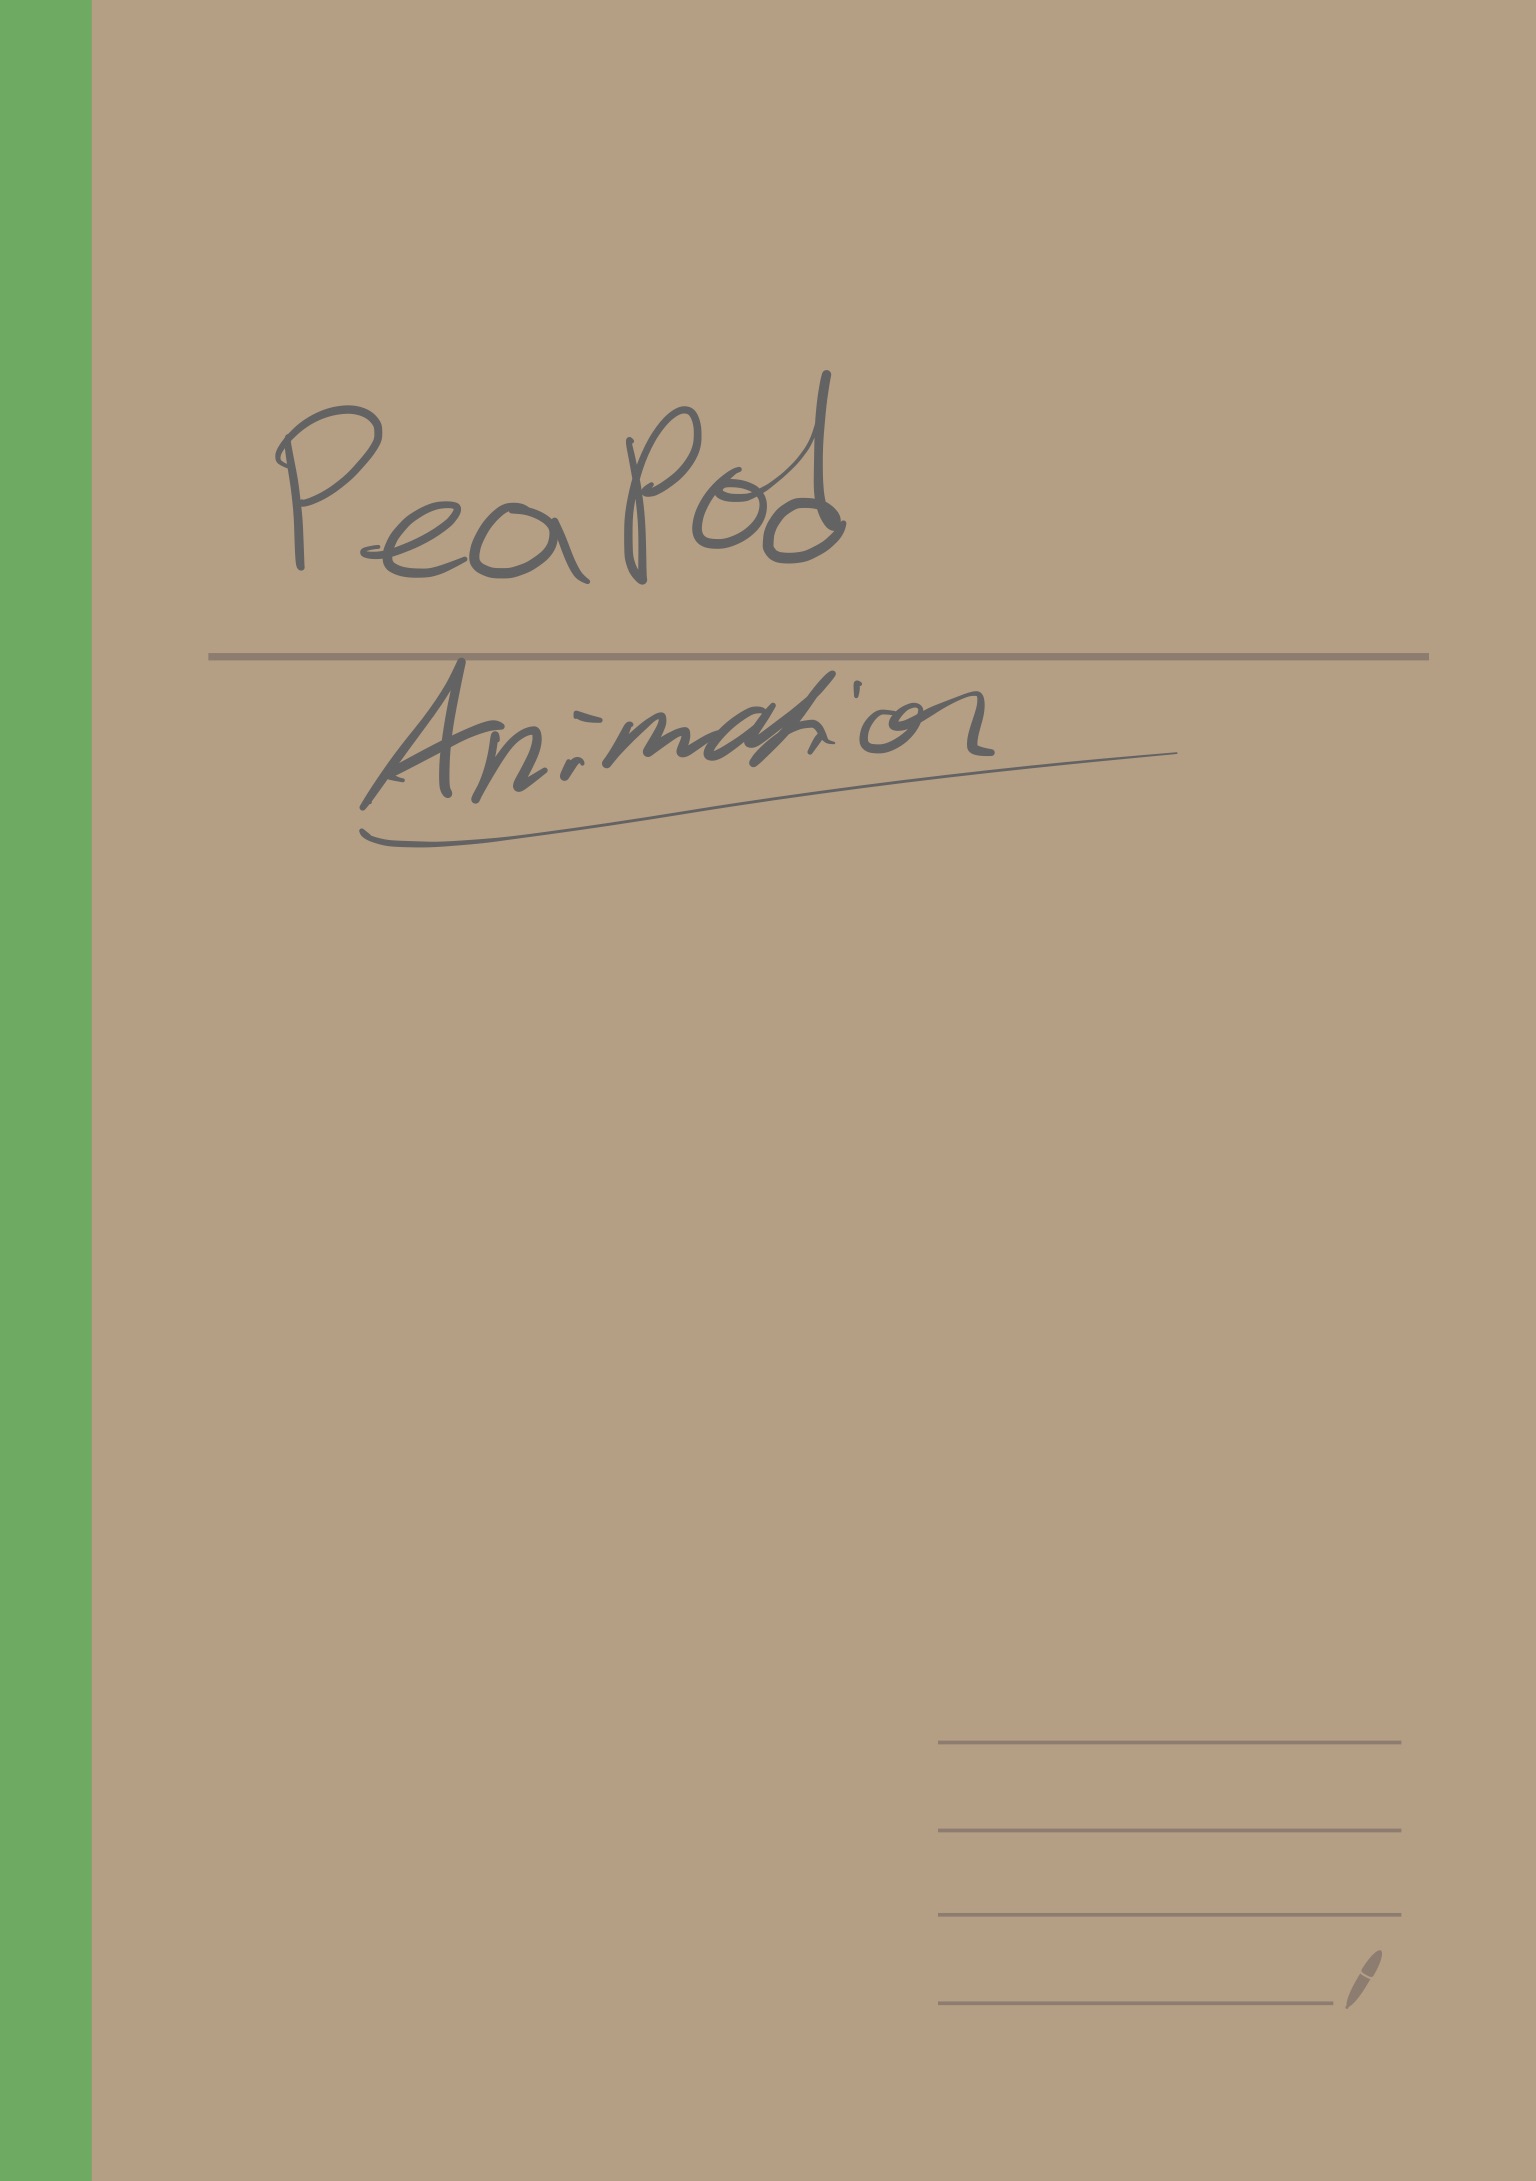 Pea Pod
Animation